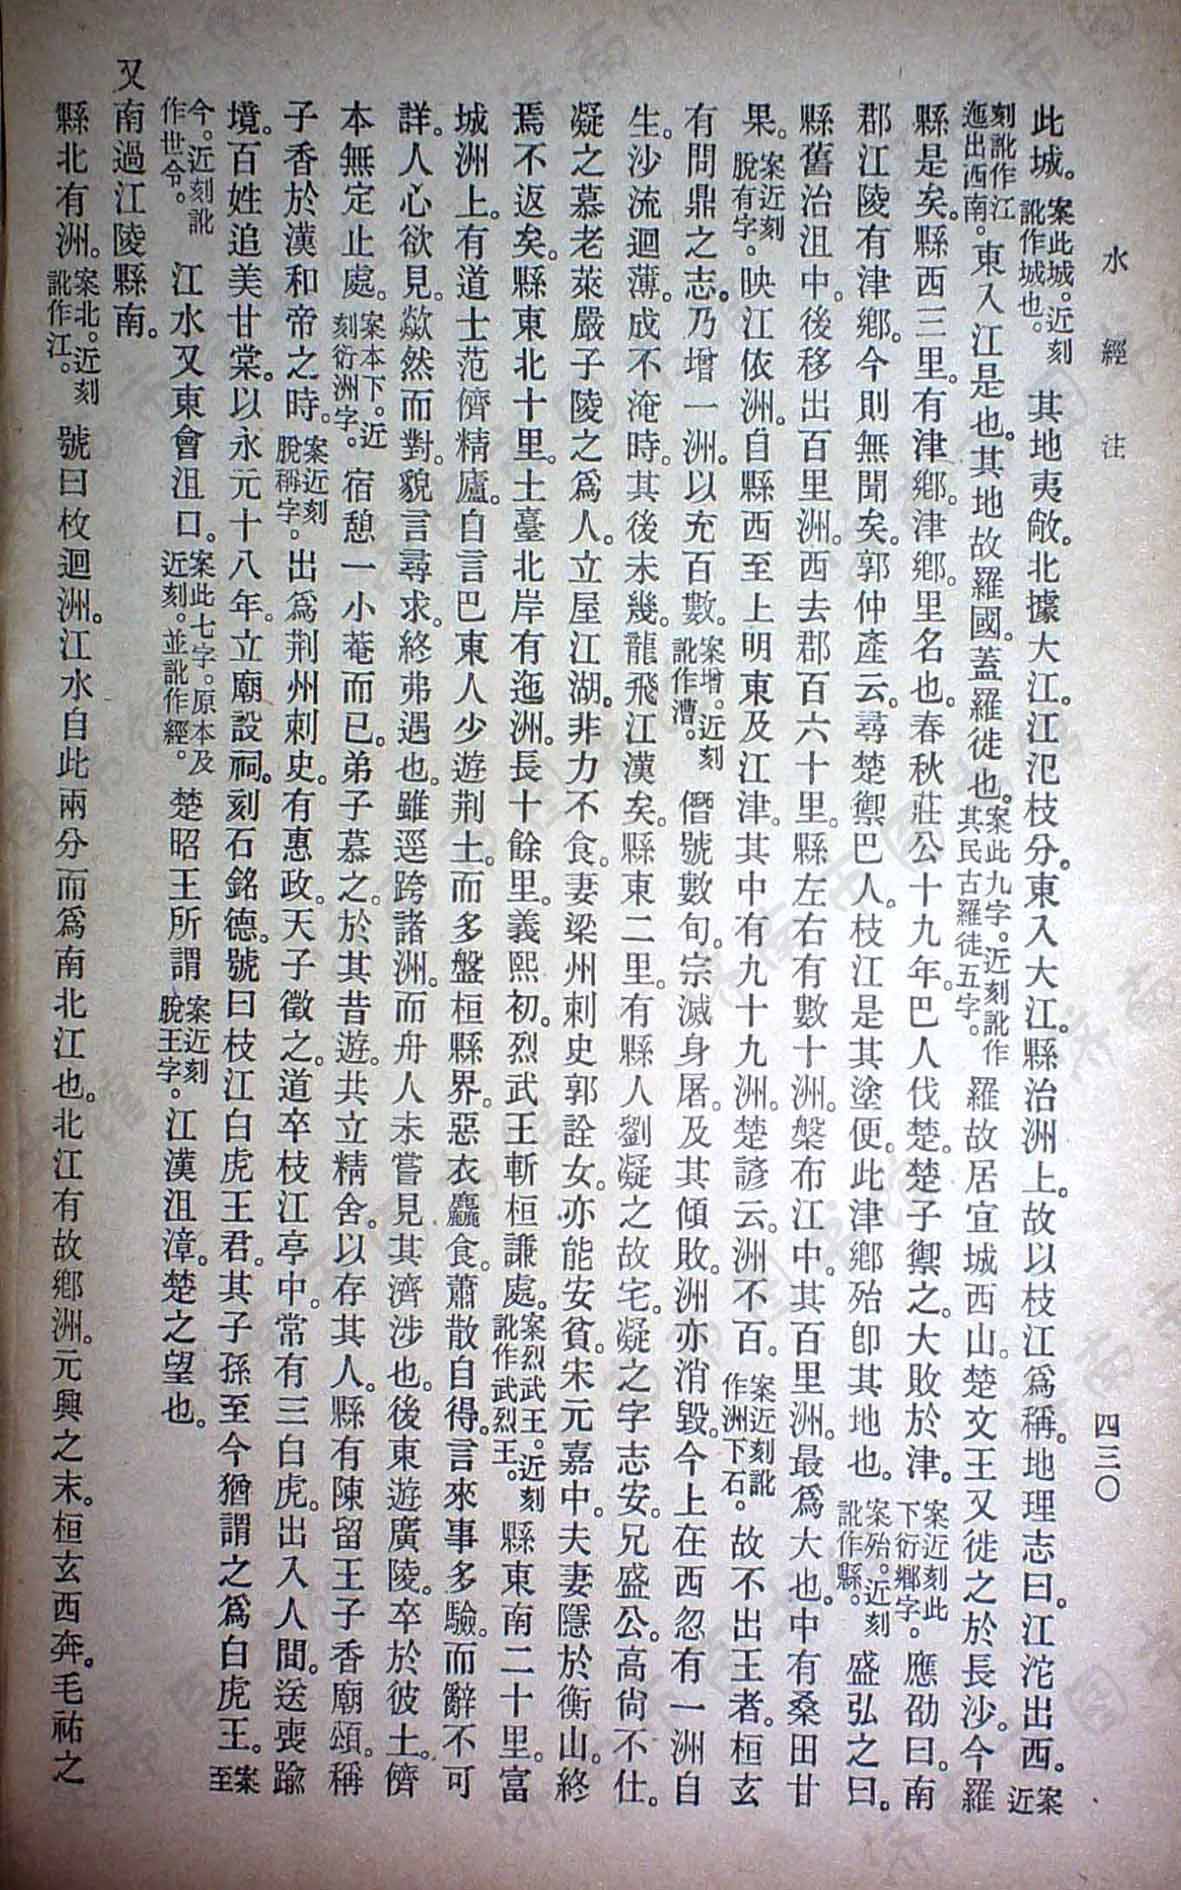 水經注
四三〇
此城。案此城。近刻訛作城也。其地夷敞。北據大江。江汜枝分。東入大江。縣治洲上。故以枝江爲稱。地理志曰。江沱出西。案近
刻訛作江沲出西南。東入江是也。其地故羅國。蓋羅徙也。案此九字。近刻訛作其民古羅徒五字。羅故居宜城西山。楚文王又徙之於長沙。今羅
縣是矣。縣西三里。有津鄉。津鄉。里名也。春秋莊公十九年。巴人伐楚。楚子禦之。大敗於津。案近刻此下衍鄉字。應劭曰。南
郡江陵有津鄉。今則無聞矣。郭仲產云。尋楚禦巴人。枝江是其塗便。此津鄉殆卽其地也。案殆。近刻訛作縣。盛弘之曰。
縣舊治沮中。後移出百里洲。西去郡百六十里。縣左右有數十洲。槃布江中。其百里洲。最爲大也。中有桑田甘
果。案近刻脫有字。映江依洲。自縣西至上明東及江津。其中有九十九洲。楚諺云。洲不百。案近刻訛作洲下石。故不出王者。桓玄
有問鼎之志。乃增一洲。以充百數。案增。近刻訛作漕。僭號數旬。宗滅身屠。及其傾敗。洲亦消毀。今上在西忽有一洲自
生。沙流迴薄。成不淹時。其後未幾。龍飛江漢矣。縣東二里。有縣人劉凝之故宅。凝之字志安。兄盛公。高尙不仕。
凝之慕老萊嚴子陵之爲人。立屋江湖。非力不食。妻梁州刺史郭詮女。亦能安貧。宋元嘉中。夫妻隱於衡山。終
焉不返矣。縣東北十里。土臺北岸有迤洲。長十餘里。義熙初。烈武王斬桓謙處。案烈武王。近刻訛作武烈王。縣東南二十里。富
城洲上。有道士范儕精廬。自言巴東人少遊荆土。而多盤桓縣界。惡衣麤食。蕭散自得。言來事多驗。而辭不可
詳。人心欲見。歘然而對。貌言尋求。終弗遇也。雖逕跨諸洲。而舟人未嘗見其濟涉也。後東遊廣陵。卒於彼土。儕
本無定止處。案本下。近刻衍洲字。宿憩一小菴而已。弟子慕之。於其昔遊。共立精舍。以存其人。縣有陳留王子香廟頌。稱
子香於漢和帝之時。案近刻脫稱字。出爲荆州刺史。有惠政。天子徵之。道卒枝江亭中。常有三白虎。出入人間。送喪踰
境。百姓追美甘棠。以永元十八年。立廟設祠。刻石銘德。號曰枝江白虎王君。其子孫至今猶謂之爲白虎王。案至
今。近刻訛作世令。江水又東會沮口。案此七字。原本及近刻。並訛作經。楚昭王所謂案近刻脫王字。江漢沮漳。楚之望也。
又南過江陵縣南。
縣北有洲。案北。近刻訛作江。號曰枚迴洲。江水自此兩分而爲南北江也。北江有故鄉洲。元興之末。桓玄西奔。毛祐之